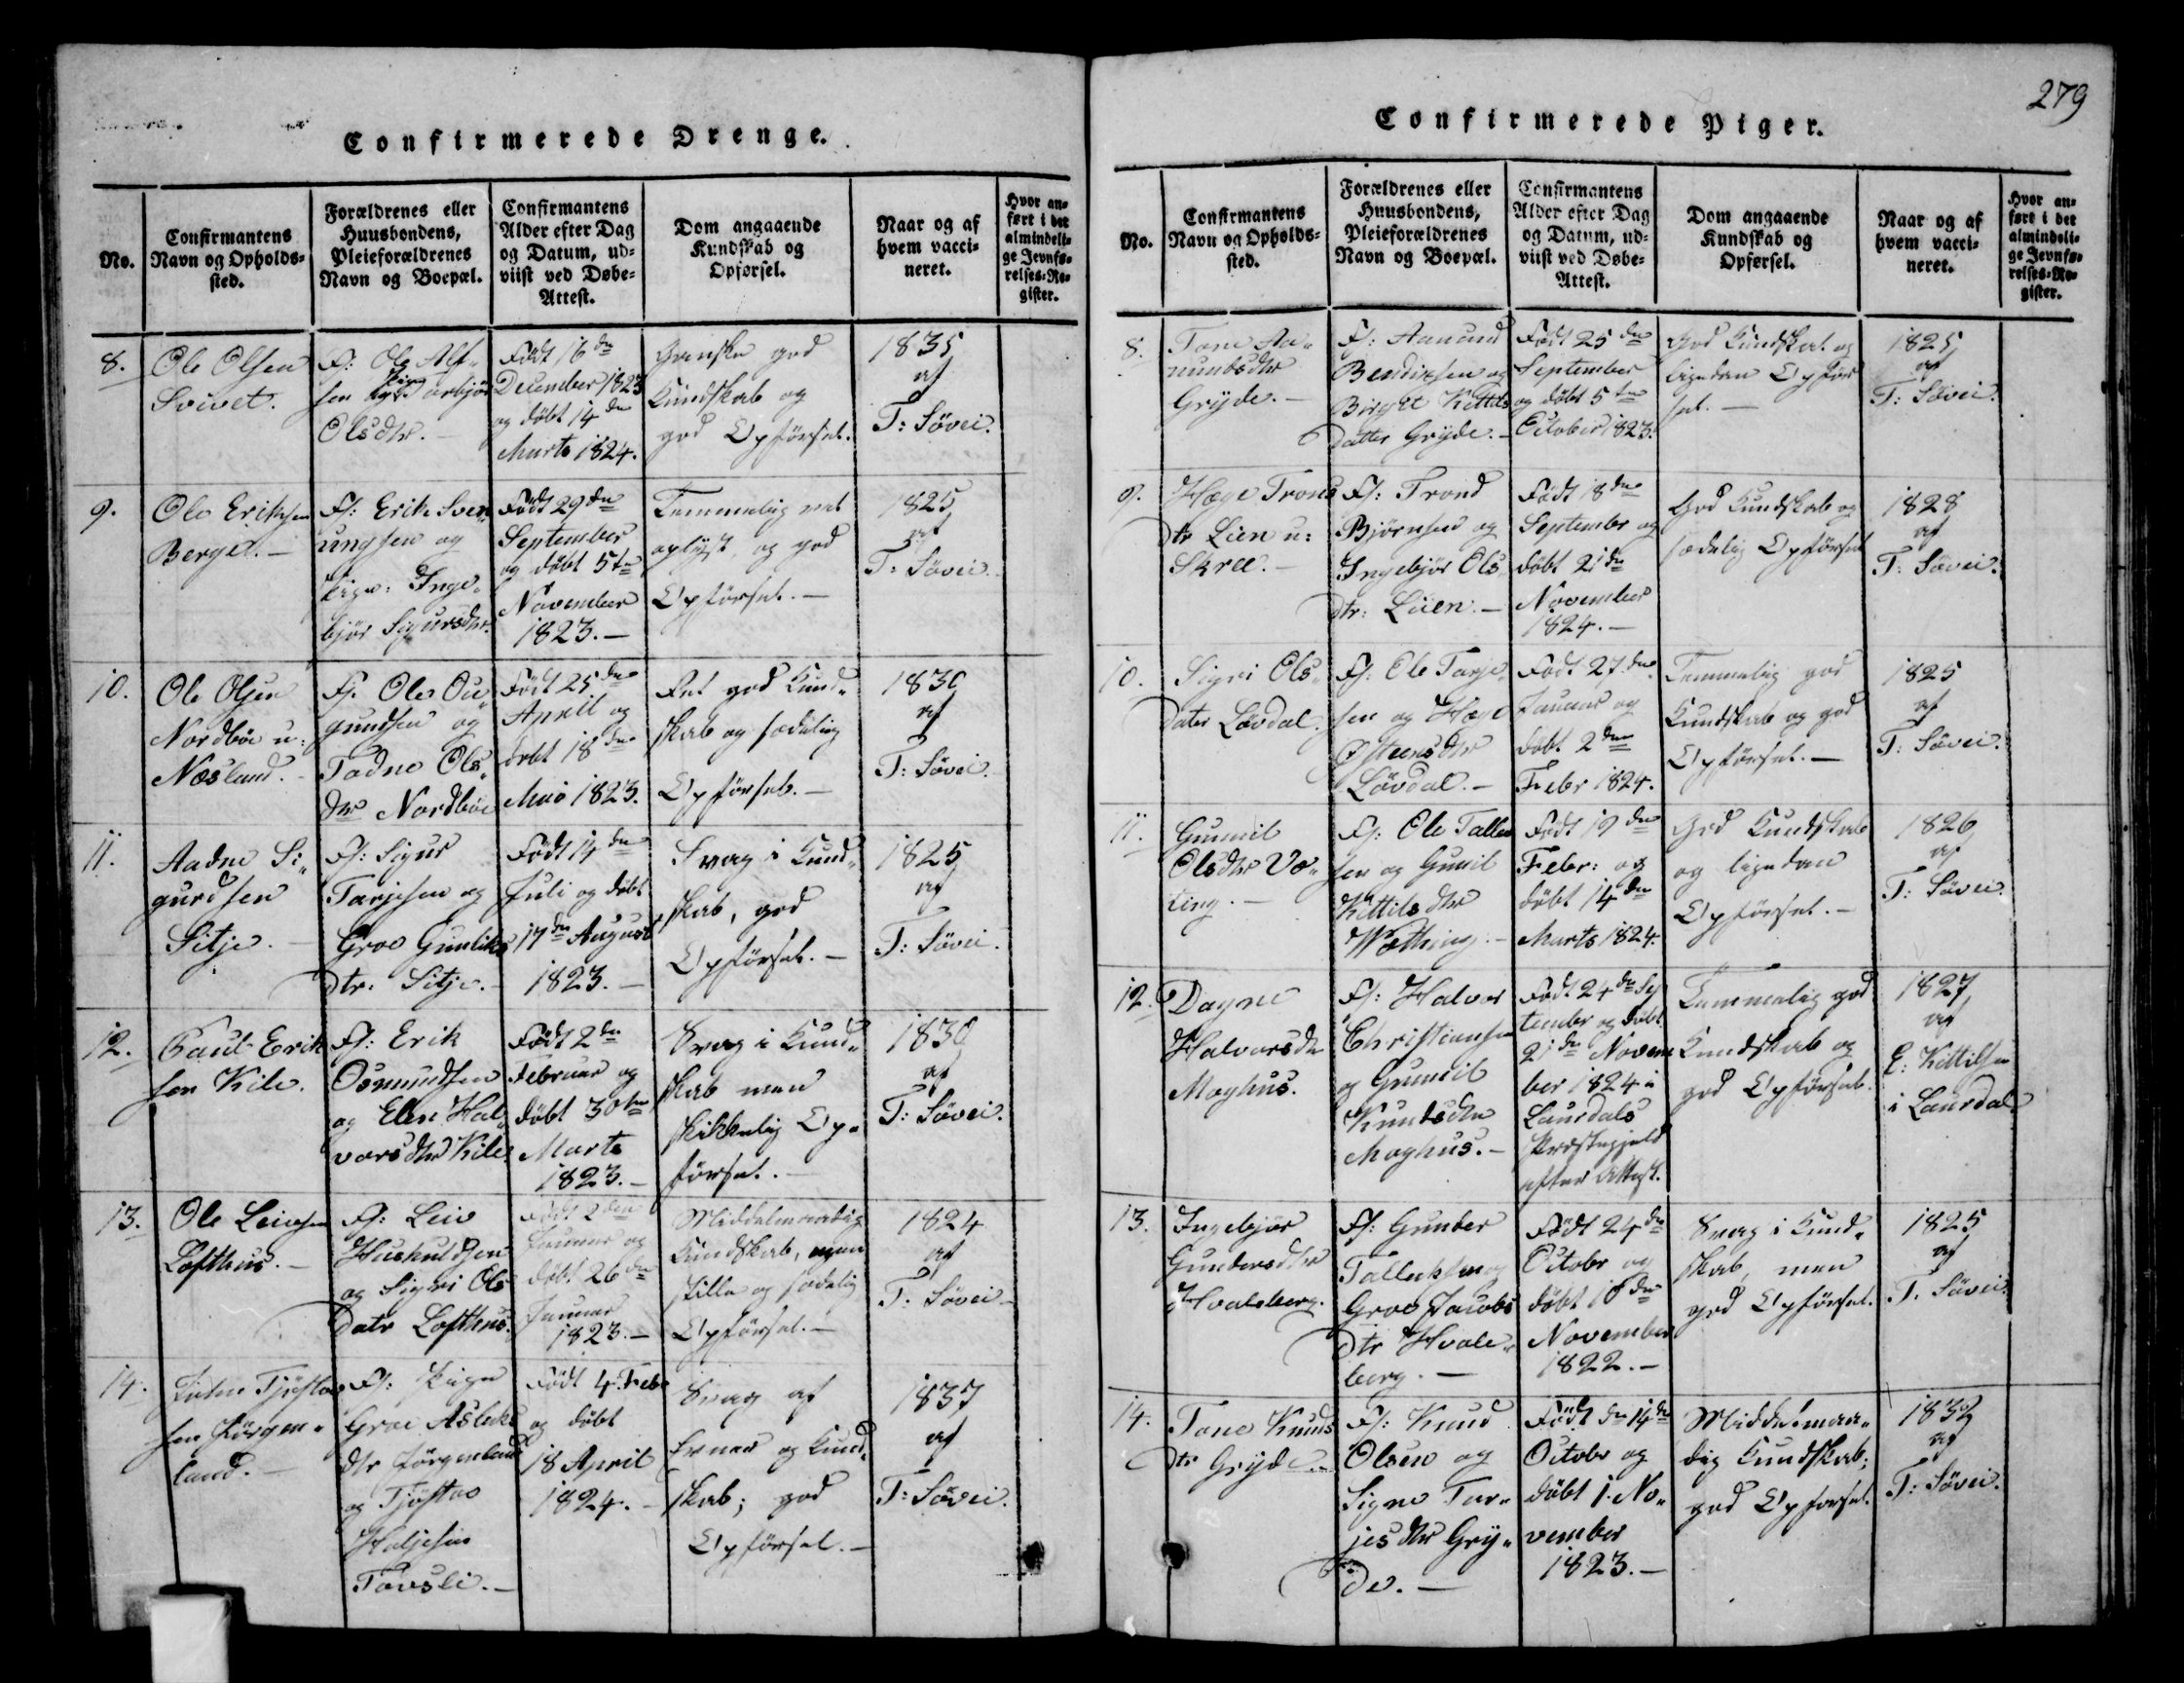 Confirmerede Drenge.
No.
Confirmantens
Navn og Opholds-
sted.
Forældrenes eller
Huusbondens,
Pleieforældrenes
Navn og Boepæl.
Confirmantens
Alder efter Dag
og Datum, ud-
viist ved Døbe-
Attest.
Dom angaaende
Kundskab og
Opførsel.
Naar og af
hvem vacci-
neret.
Hvor an-
ført i det
almindeli-
ge Jevnfø-
relses-Re-
gister.
8.
Ole Olsen
Svivet.
F: Ole Alf-
sen
Olsdtr.-
Født 16de
December 1823
og døbt 14de
Marts 1824.
Ganske god
Kundskab og
god Opførsel.
1835
af
T: Søvei.
9.
Ole Eriksen
Berge.-
F: Erik Sven-
ungsen og
Pige: Inge-
bjør Sigursdtr.
Født 29de
September
og døbt 5te
November
1823.-
Temmelig vel
oplyst, og god
Opførsel.-
1825
af
T: Søvei.
10.
Ole Olsen
Nordbøe u:
Næsland.-
F: Ole Ou-
gundsen og
Tadne Ols-
dtr Nordbøe
Født 25de
April og
døbt 18de
Mai 1823.
Ret god Kund-
skab og sædelig
Opførsel.-
1830
af
T: Søvei.
11.
Aadne Si-
gurdsen
Sitje.-
F: Sigur
Tarjesen og
Groe Gunliks
dtr. Sitje.-
Født 14de
Juli og døbt
17de August
1823.-
Svag i Kund-
skab, god
Opførsel.-
1825
af
T: Søvei.
12.
Paul Erik
sen Kile.
F: Erik
Osmundsen
og Elen Hal-
vorsdtr Kile.
Født 2de
Februar og
døbt 30te
Marts
1823.-
Svag i Kund-
skab men
skikkelig Op-
førsel.-
1830
af
T: Søvei.
13.
Ole Leivsen
Lofthus.-
F: Leiv
Huskuldsen
og Sigri Ols
datr Lofthus.
Født 2den
Januar og
døbt 26de
Januar
1823.-
Middelmaadig
Kundskab, men
stille og sædelig
Opførsel.-
1824
af
T: Søvei.-
14.
Tjøstov
sen Jørgen-
land.-
F: Pige
Groe Aslaks
dtr Jørgenland
og Tjøstov
Haljesen
Tovsli.-
Født 4. Febr
og døbt
18 April
1824.-
Svag af
Evner og Kund-
skab; god
Opførsel.-
1837
af
T: Søvei.
279
Confirmerede Piger.
No.
Confirmantens
Navn og Opholds-
sted.
Forældrenes eller
Huusbondens,
Pleieforældrenes
Navn og Boepæl.
Confirmantens
Alder efter Dag
og Datum, ud-
viist ved Døbe-
Attest.
Dom angaaende
Kundskab og
Opførsel.
Naar og af
hvem vacci-
neret.
Hvor an-
ført i det
almindeli-
ge Jevnfø-
relses-Re-
gister.
8.
Tone Aa-
nundsdtr
Gryde.-
F: Aanund
Bendixsen og
Birgit Kittils
datter Gryde.-
Født 25de
September
og døbt 5te
October 1823.
God Kundskab og
ligedan Opfør
sel.-
1825
af
T: Søvei.
9.
Hæge Tronds
dtr Lien u:
Skree.-
F: Trond
Bjørnsen og
Ingebjør Ols
dtr: Lien.-
Født 18de
Septembr og
døbt 21de
November
1824.-
God Kundskab og
sædelig Opførsel
1828
af
T: Søvei.
10.
Sigri Ols-
dater Løvdal.
F: Ole Tarje
sen og Hæge
Østeensdtr
Løvdal.-
Født 27de
Januar og
døbt 2den
Febr 1824.
Temmelig god
Kundskab og god
Opførsel.-
1825
af
T: Søvei.
11.
Gunnil
Olsdtr Væ-
ting.-
F: Ole Talle
sen og Gunil
Kittilsdtr
Wæthing.-
Født 19de
Febr: og
døbt 14de
Marts 1824.
God Kundskab
og ligedan
Opførsel.-
1826
af
T: Søvei.
12.
Dagne
Halvorsdtr
Moghus.
F: Halvor
Christiansen
og Gunnil
Knudsdtr
Moghus.-
Født 24de Sep
tember og døbt
21de Novem
ber 1824 i
Laurdals
Præstegjeld
efter Attest.
Temmelig god
Kundskab og
god Opførsel.
1827
af
E: Kittilsen
i Laurdal
13.
Ingebjør
Gundersdtr
Hvaleberg.
F: Gunder
Talleksen og
Groe Jacobs
dtr Hvale-
berg.-
Født 24de
Octobr og
døbt 10de
November
1822.-
Svag i Kund-
skab, men
god Opførsel.
1825
af
T. Søvei.
14.
Tone Knuds
dtr Grÿde.-
F: Knud
Olsen og
Signe Tar-
jesdtr Gry-
de.-
Født den 14de
Octobr og
døbt 1. No-
vember
1823.-
Middelmaa-
dig Kundskab;
god Opførsel.
1832
af
T: Søvei.